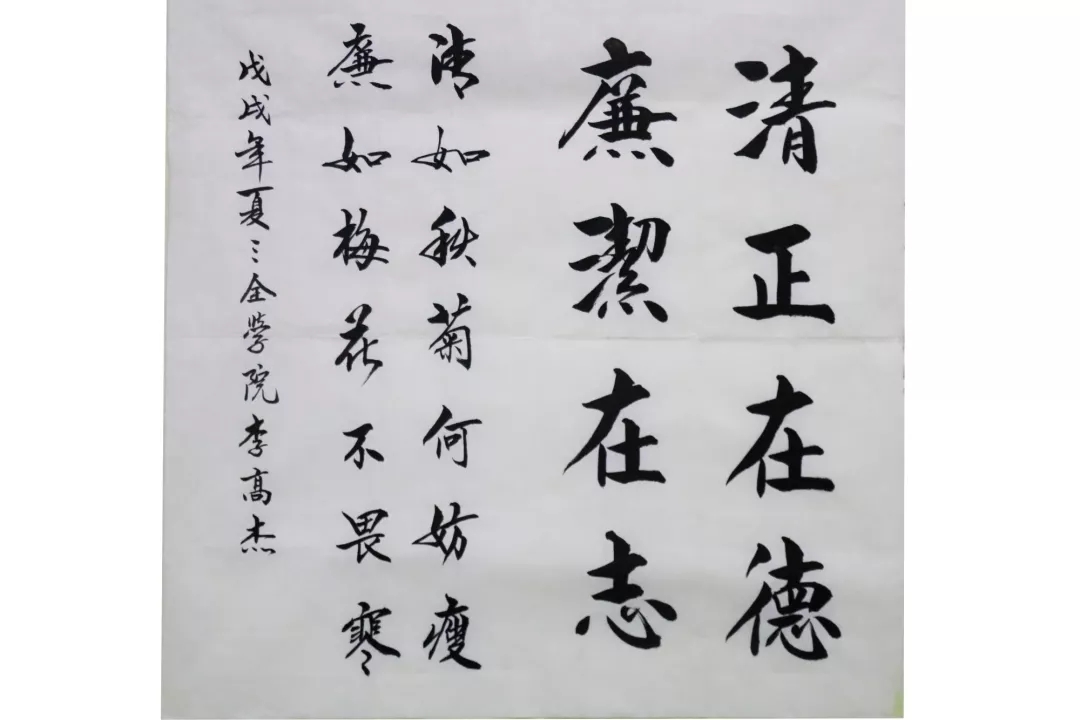 清正在德
廉潔在志
清如秋菊何妨瘦
廉如梅花不畏寒
戊戌年夏三全学院李高杰